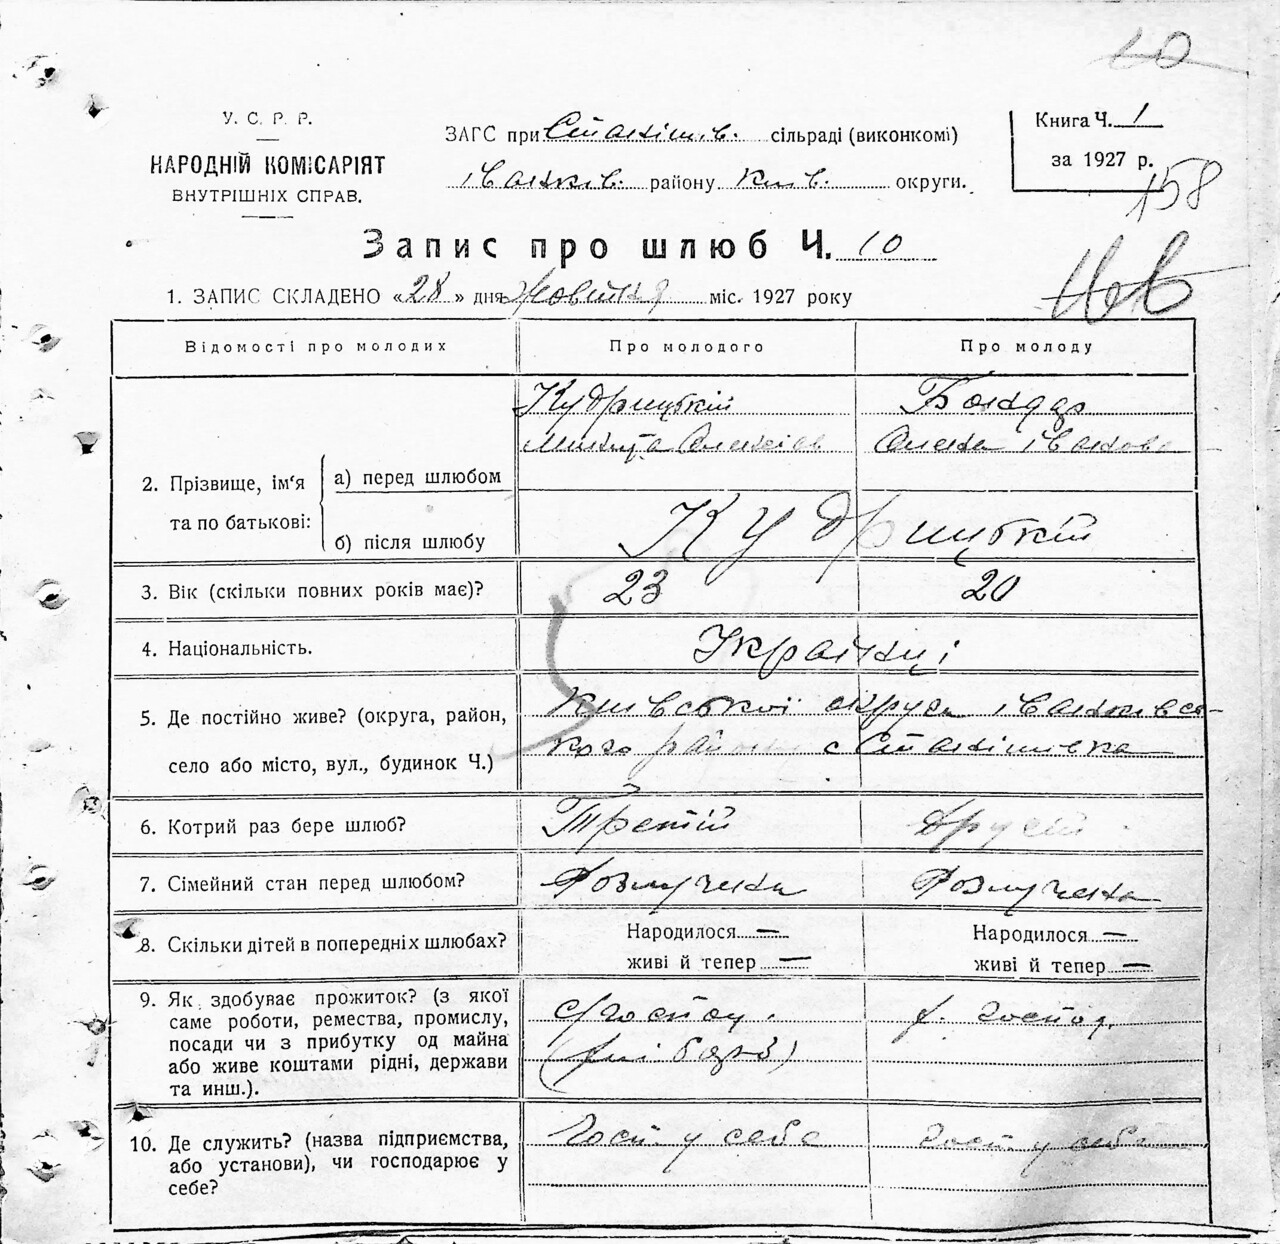 10
У. С. Р. Р.
НАРОДНІЙ КОМІСАРІЯТ
ВНУТРІШНІХ СПРАВ.
ЗАГС при Станішів. сільраді (виконкомі)
Іванків. району Київ. округи.
Книга Ч. 1
за 1927 р.
158
Запис про шлюб Ч. 10
1. ЗАПИС СКЛАДЕНО «28» дня Жовтня міс. 1927 року
Відомості про молодих Про молодого Про молоду
Кудрицький Бондар
Микита Олексіев Олена Іванова
2. Прізвище, ім'я та по батькові:
а) перед шлюбом
б) після шлюбу
Кудрицкій
3. Вік (скільки повних років має)? 23 20
4. Національність. Українці
5. Де постійно живе? (округа, район, село або місто, вул., будинок Ч.)
Київської округи Іванківсь-
кого району с Станішівка
6. Котрий раз бере шлюб? Третій Другий
7. Сімейний стан перед шлюбом? Розлучени Розлучена
8. Скільки дітей в попередніх шлюбах? Народилося — Народилося —
живі й тепер — живі й тепер —
9. Як здобуває прожиток? (з якої
саме роботи, ремества, промислу,
посади чи з прибутку од майна
або живе коштами рідні, держави
та инш.).
10. Де служить? (назва підприємства,
або установи), чи господарює у
себе?
Госп. у себе Госп у себе